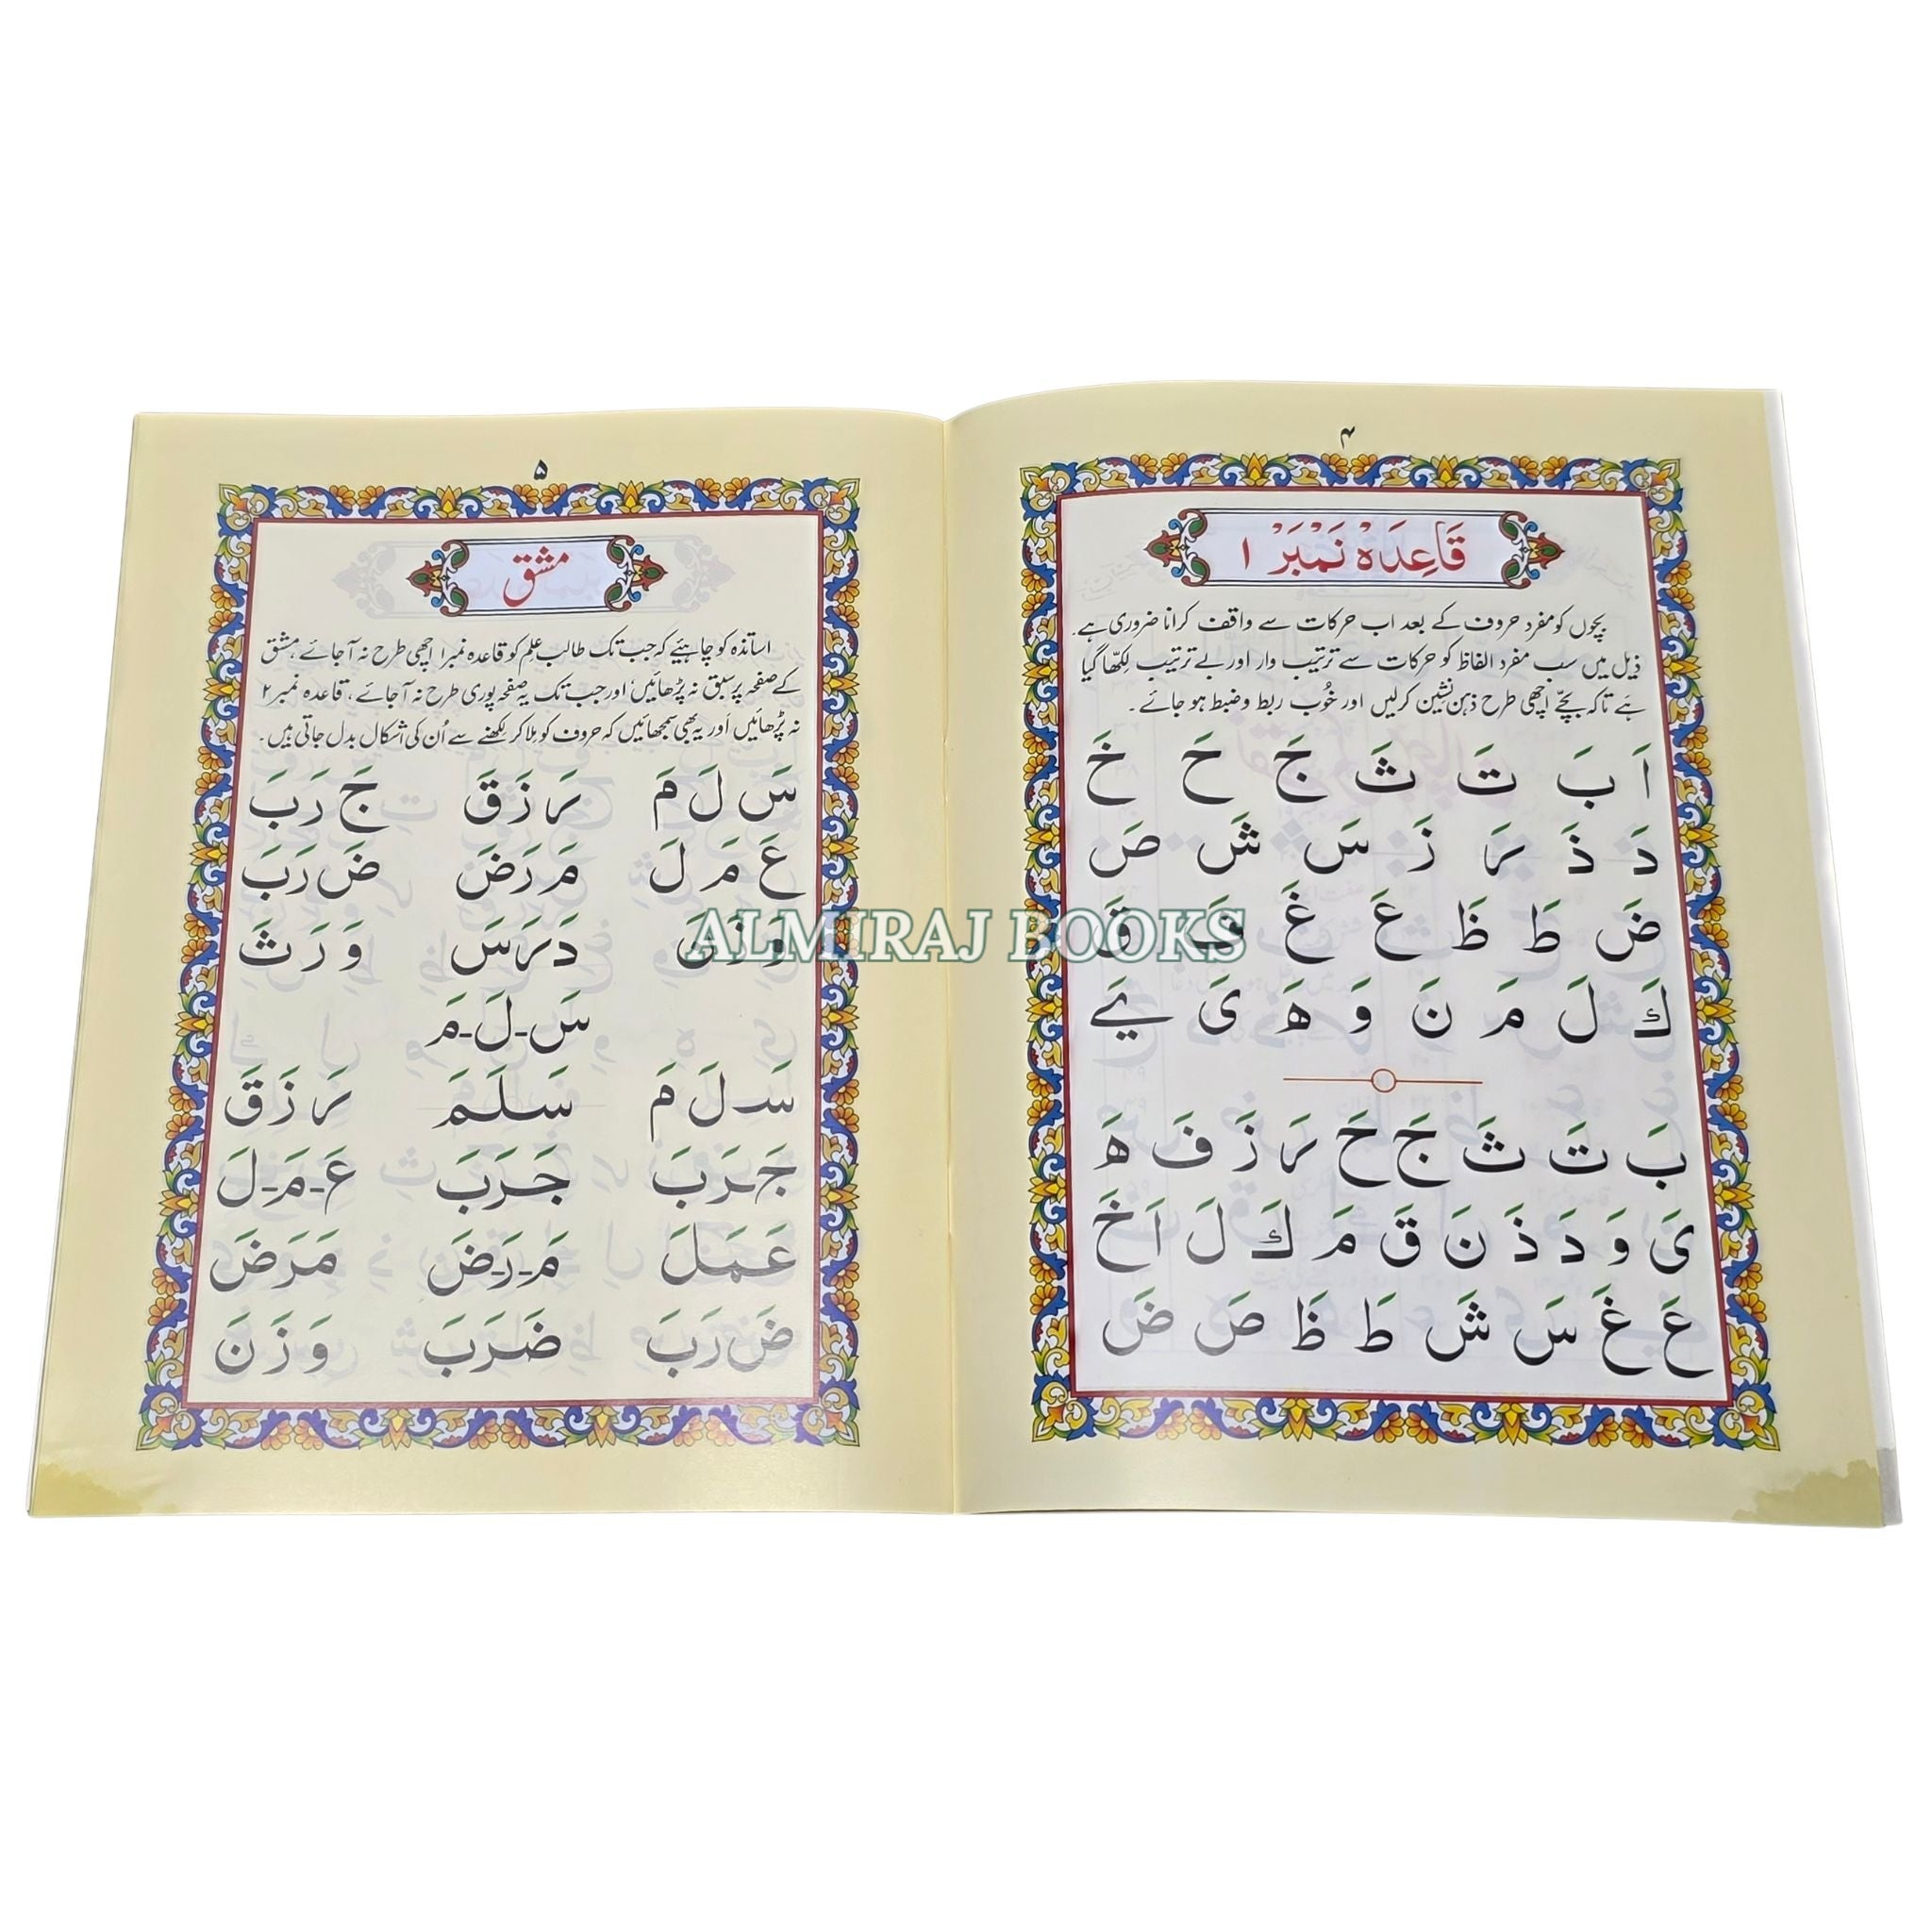 ۴
قَاعِدَہْ نَمْبَرْ ۱
بچوں کو مفرد حروف کے بعد اب حرکات سے واقف کرانا ضروری ہے۔
ذیل میں سب مفرد الفاظ کو حرکات سے ترتیب وار اور بے ترتیب لکھا گیا
ہے تاکہ بچّے اچھی طرح ذہن نشین کرلیں اور خُوب ربط وضبط ہو جائے۔
اَ بَ تَ ثَ جَ حَ خَ
دَ ذَ رَ زَ سَ شَ صَ
ضَ طَ ظَ عَ غَ فَ قَ
كَ لَ مَ نَ وَ هَ ىَ ےَ
بَ تَ ثَ جَ حَ رَ زَ فَ هَ
ىَ وَ دَ ذَ نَ قَ مَ كَ لَ اَ خَ
عَ غَ سَ شَ طَ ظَ صَ ضَ
۵
مشق
اساتذہ کو چاہئیے کہ جب تک طالب علم کو قاعدہ نمبر۱ اچھی طرح نہ آجائے، مشق
کے صفحہ پر سبق نہ پڑھائیں اور جب تک یہ صفحہ پوری طرح نہ آجائے، قاعدہ نمبر۲
نہ پڑھائیں اور یہ بھی سمجھائیں کہ حروف کو ملا کر لکھنے سے اُن کی اشکال بدل جاتی ہیں۔
سَ لَ مَ رَ زَ قَ جَ رَ بَ
عَ مَ لَ مَ رَ ضَ ضَ رَ بَ
وَ زَ نَ دَ رَ سَ وَ رَ ثَ
سَ-لَ-مَ
سَـ لَ مَ سَلَمَ رَ زَ قَ
جَـ رَ بَ جَرَبَ عَ-مَ-لَ
عَمَلَ مَ-رَ-ضَ مَرَضَ
ضَ رَ بَ ضَرَبَ وَ زَ نَ
ALMIRAJ BOOKS